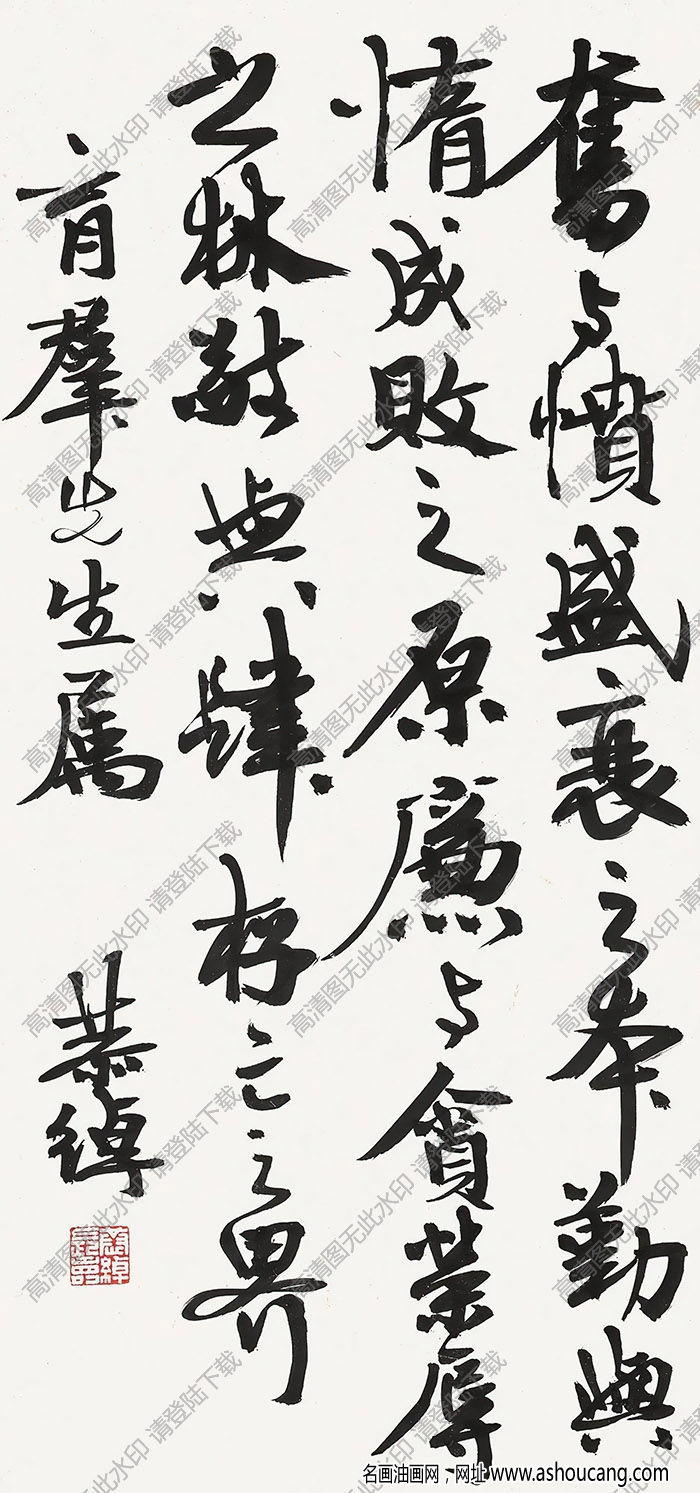 奮与憒盛衰之本勤與
惰成敗之原廉与貪榮辱
之林敬與肆存亡之界
育羣先生属
恭綽
高清图无此水印 请登陆下载
名画油画网，网址 www.ashoucang.com